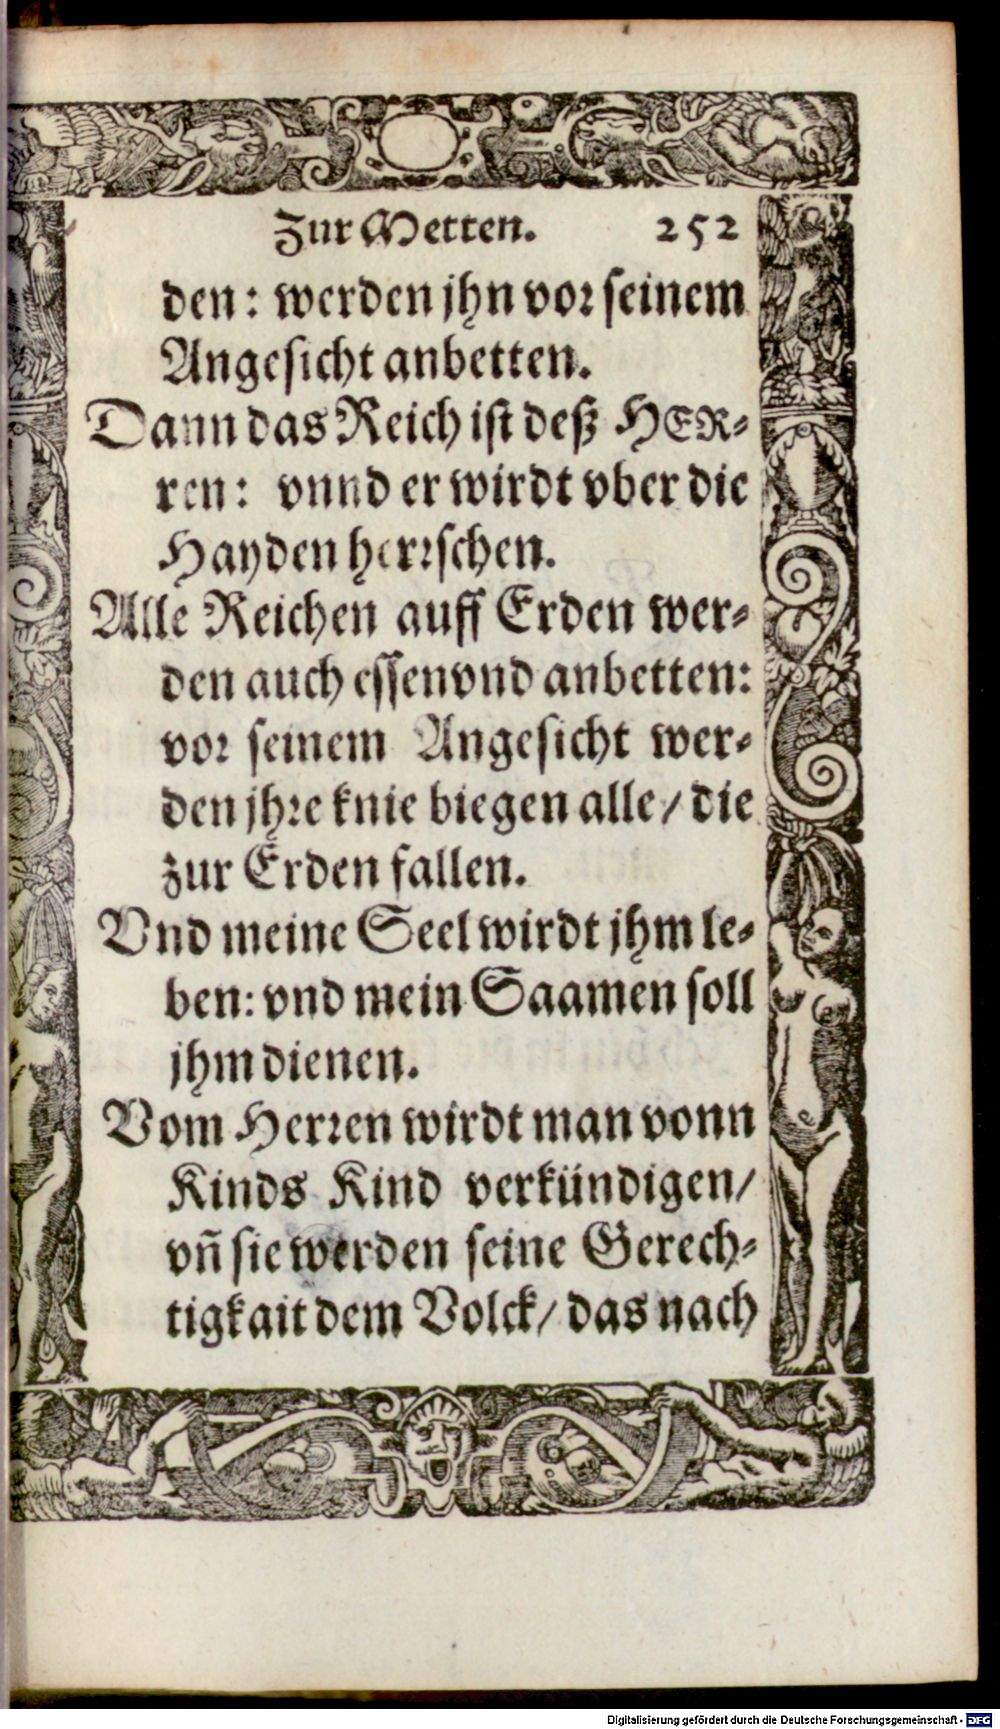 Zur Metten. 252
den: werden jhn vor seinem
Angesicht anbetten.
Dann das Reich ist deß HER-
ren: vnnd er wirdt vber die
Hayden herrschen.
Alle Reichen auff Erden wer-
den auch essen vnd anbetten:
vor seinem Angesicht wer-
den jhre knie biegen alle/ die
zur Erden fallen.
Vnd meine Seel wirdt jhm le-
ben: vnd mein Saamen soll
jhm dienen.
Vom Herren wirdt man vonn
Kinds Kind verkündigen/
vñ sie werden seine Gerech-
tigkait dem Volck/ das nach
Digitalisierung gefördert durch die Deutsche Forschungsgemeinschaft - DFG